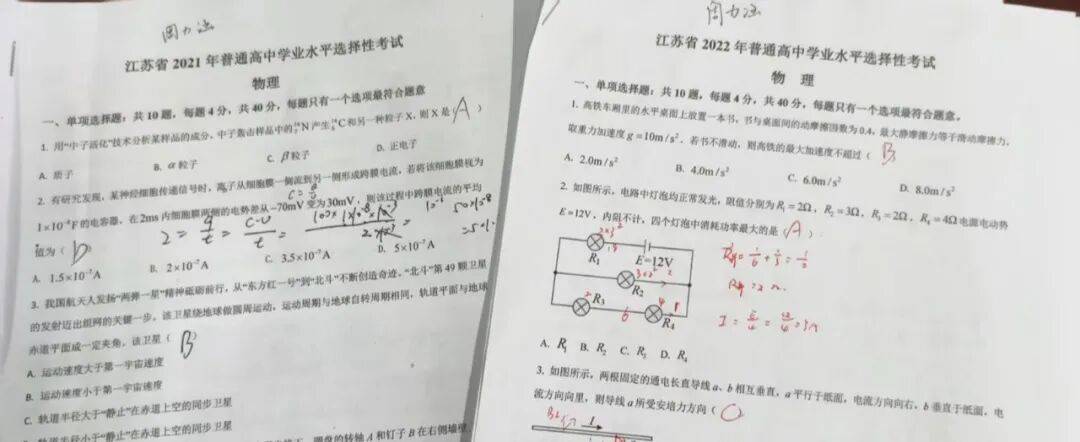 周力涵
江苏省 2021 年普通高中学业水平选择性考试
物理
一、单项选择题:共 10 题,每题 4 分,共 40 分,每题只有一个选项最符合题意
1. 用“中子活化”技术分析某样品的成分,中子轰击样品中的 ¹⁴₇N 产生 ¹⁴₆C 和另一种粒子 X,则 X 是( A )
A. 质子 B. α粒子 C. β粒子 D. 正电子
2. 有研究发现,某神经细胞传递信号时,离子从细胞膜一侧流到另一侧形成跨膜电流,若将该细胞膜视为
1×10⁻⁸F 的电容器,在 2ms 内细胞膜两侧的电势差从 −70mV 变为 30mV,则该过程中跨膜电流的平均
值为( D )
A. 1.5×10⁻⁷A B. 2×10⁻⁷A C. 3.5×10⁻⁷A D. 5×10⁻⁷A
3. 我国航天人发扬“两弹一星”精神砥砺前行,从“东方红一号”到“北斗”不断创造奇迹,“北斗”第 49 颗卫星
的发射迈出组网的关键一步。该卫星绕地球做圆周运动,运动周期与地球自转周期相同,轨道平面与地球
赤道平面成一定夹角。该卫星( B )
A. 运动速度大于第一宇宙速度
B. 运动速度小于第一宇宙速度
C. 轨道半径大于“静止”在赤道上空的同步卫星
轨道半径小于“静止”在赤道上空的同步卫星
圆盘的转轴 A 和钉子 B 在右侧墙壁
周力涵
江苏省 2022 年普通高中学业水平选择性考试
物 理
一、单项选择题:共 10 题,每题 4 分,共 40 分,每题只有一个选项最符合题意。
1. 高铁车厢里的水平桌面上放置一本书,书与桌面间的动摩擦因数为 0.4,最大静摩擦力等于滑动摩擦力,
取重力加速度 g=10m/s²。若书不滑动,则高铁的最大加速度不超过( B
A. 2.0m/s² B. 4.0m/s² C. 6.0m/s² D. 8.0m/s²
2. 如图所示,电路中灯泡均正常发光,阻值分别为 R₁=2Ω,R₂=3Ω,R₃=2Ω,R₄=4Ω电源电动势
E=12V,内阻不计,四个灯泡中消耗功率最大的是( A )
R₁
E=12V
R₂
R₃
R₄
A. R₁ B. R₂ C. R₃ D. R₄
3. 如图所示,两根固定的通电长直导线 a、b 相互垂直,a 平行于纸面,电流方向向右,b 垂直于纸面,电
流方向向里,则导线 a 所受安培力方向( C
I